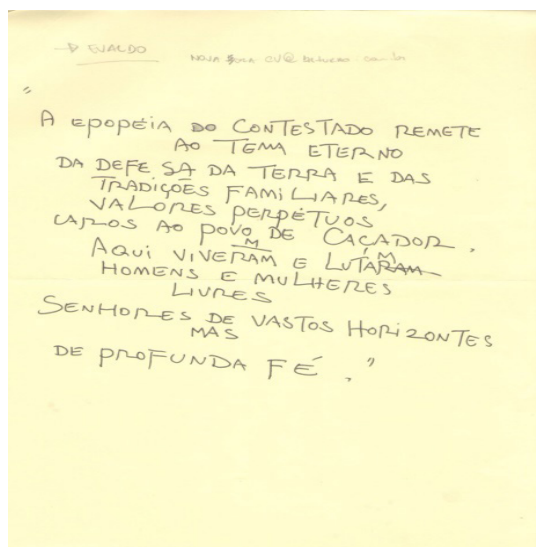 → EVALDO
NOVA
"
A EPOPÉIA DO CONTESTADO REMETE
AO TEMA ETERNO
DA DEFESA DA TERRA E DAS
TRADIÇÕES FAMILIARES,
VALORES PERPÉTUOS
CAROS AO POVO DE CAÇADOR.
M M
AQUI VIVERAM E LUTARAM
HOMENS E MULHERES
LIVRES
SENHORES DE VASTOS HORIZONTES
MAS
DE PROFUNDA FÉ."